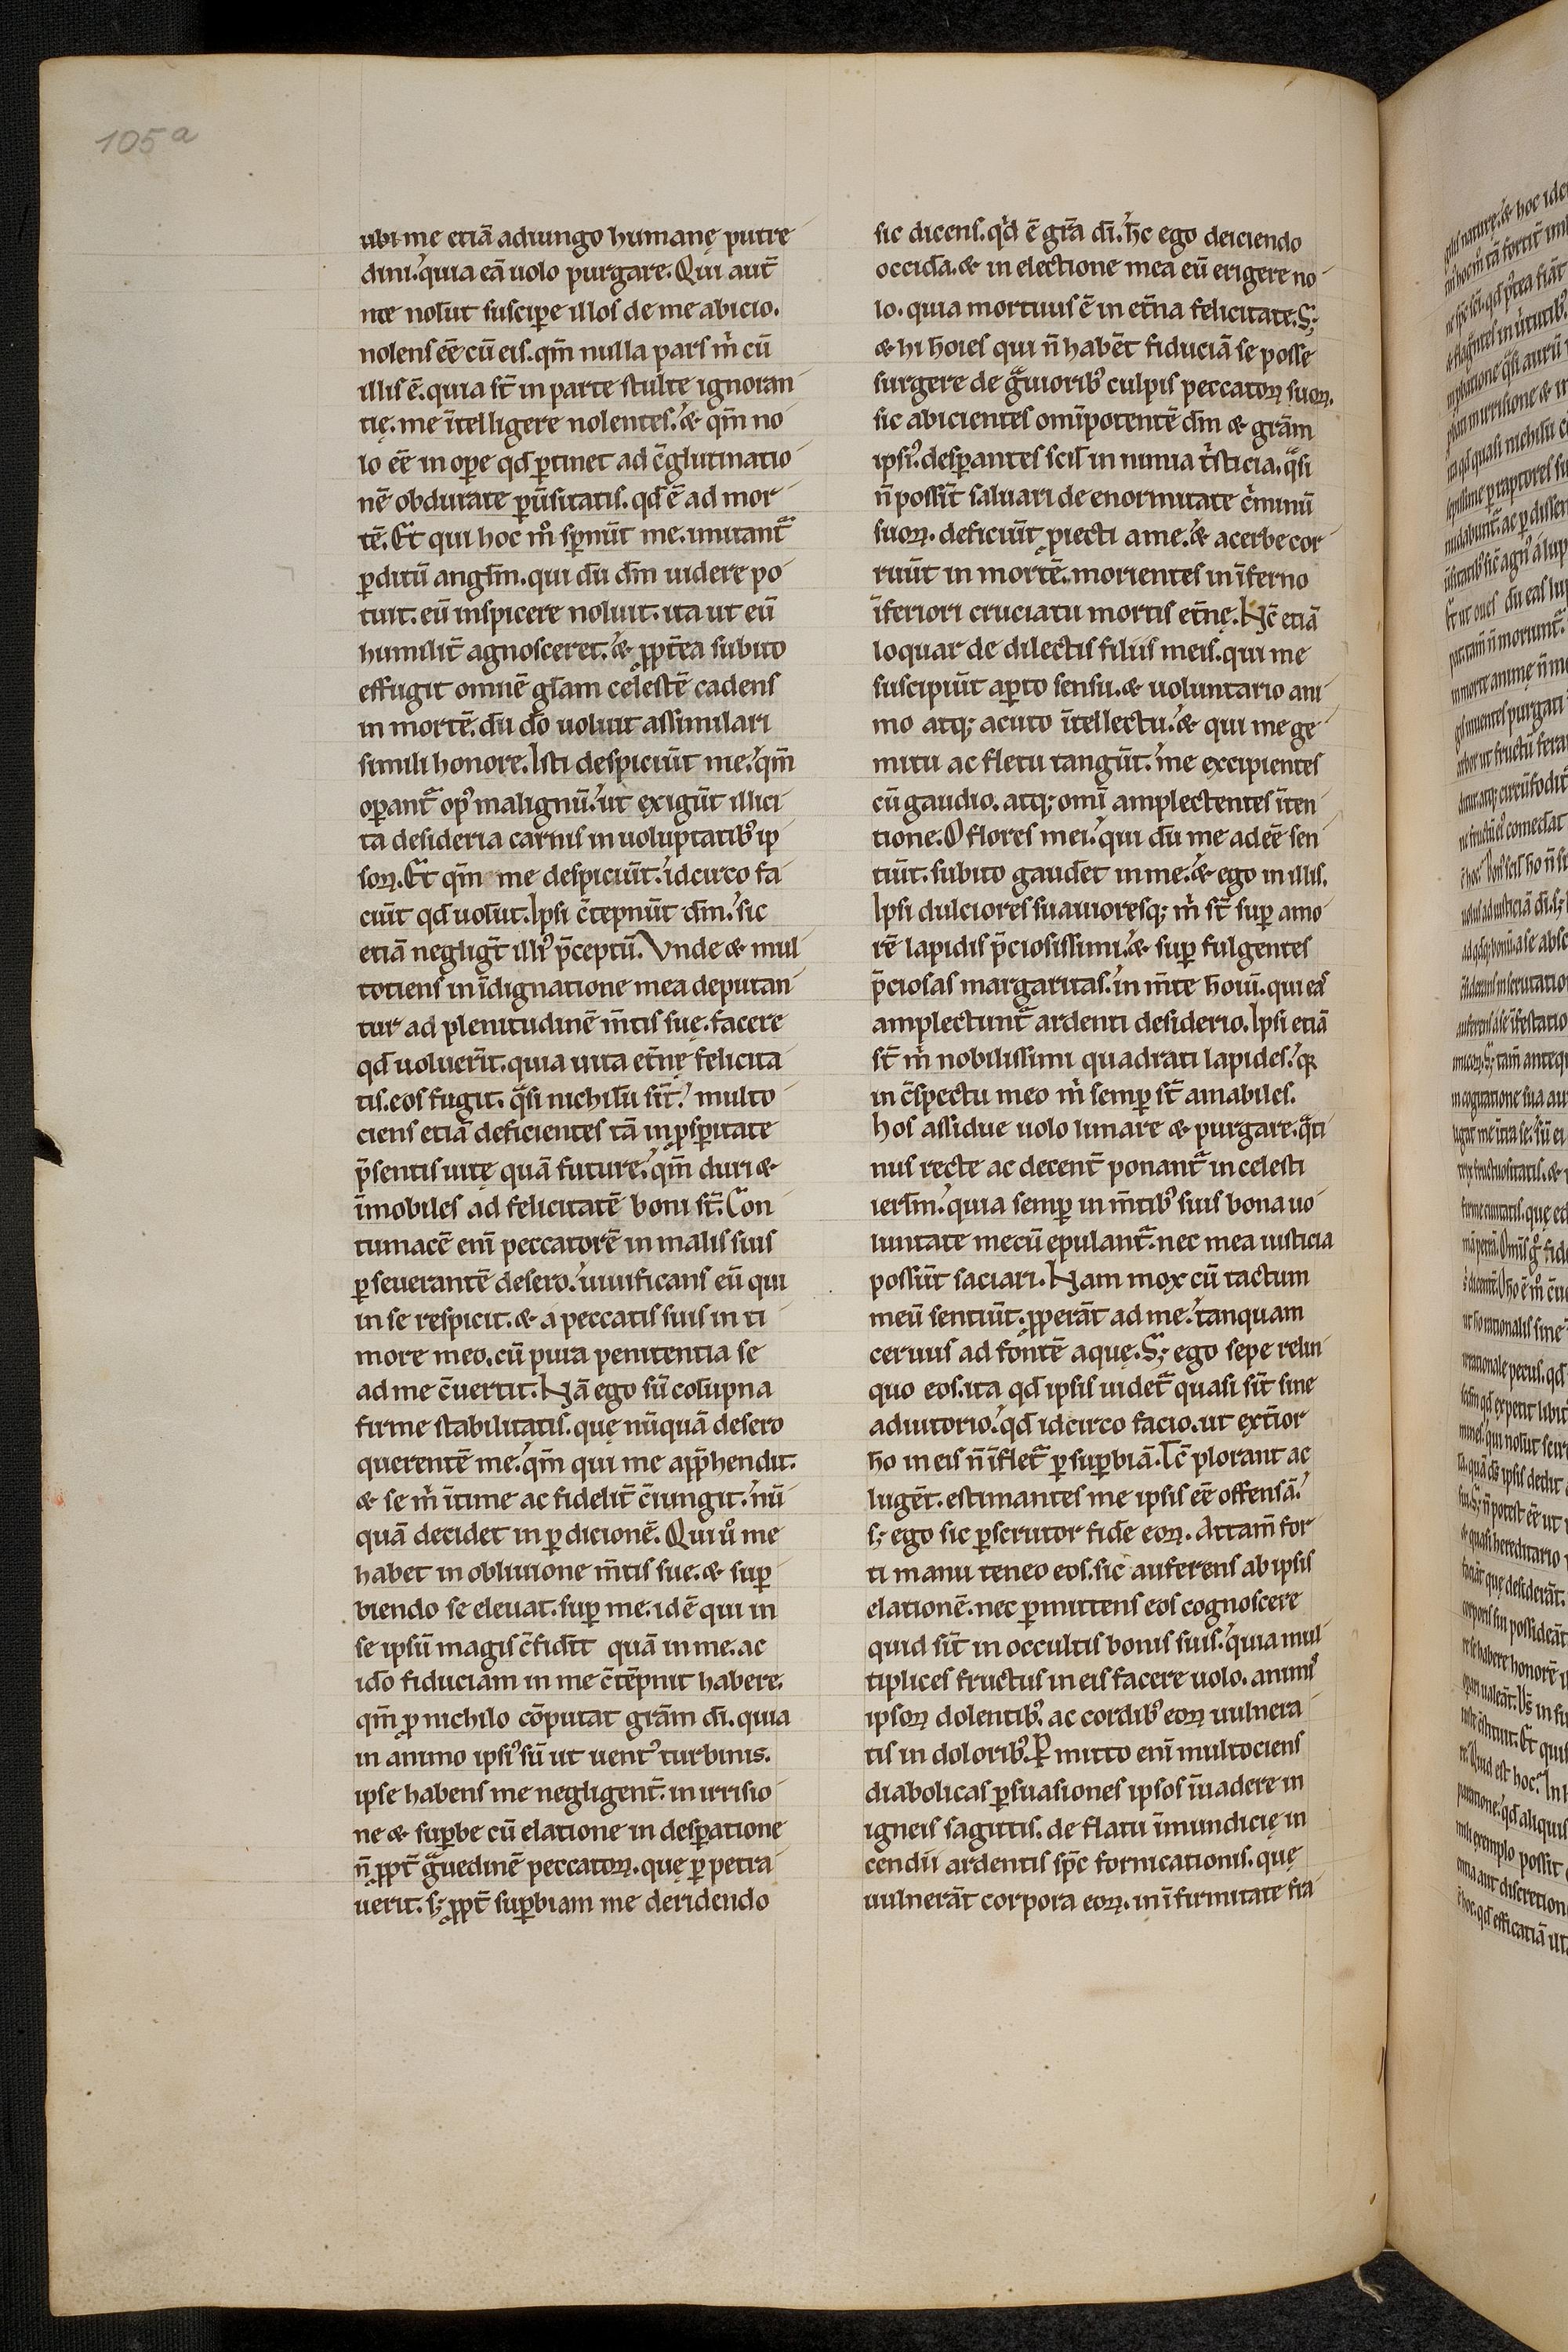 105a
ubi me etiā adiungo humanę putre
dini.ʼquia eā uolo purgare. Qui aut̄
me nolūt suscip̄e illos de me abicio.
nolens eē cū eis. qm̄ nulla pars m̄ cū
illis ē. quia st̄ in parte stulte ignoran
tię. me ītelligere nolentes.ʼ& qm̄ no
lo eē in ope qd̄ ptinet ad c̄glutinatio
nē obdurate puūsitatis. qd̄ ē ad mor
tē. Et qui hoc m̊ spnūt me. imitant᷑
pditū angl̄m. qui dū dm̄ uidere po
tuit. eū inspicere noluit. ita ut eū
humilit̄ agnosceret.ʼ& ꝓpt̄ea subito
effugit omnē gl̄am celestē cadens
in mortē. dū dō uoluit assimilari
simili honore. Isti despiciūt me.ʼqm̄
opant᷑ opꝰ malignū.ʼut exigūt illici
ta desideria carnis in uoluptatibꝰ ip
soꝝ. Et qm̄ me despiciūt.ʼidcirco fa
ciūt qd̄ uolūt. Ipsi c̄tepnūt dm̄.ʼsic
etiā negligt̄ illiꝰ p̄ceptū. Vnde & mul
totiens in īdignatione mea deputan
tur ad plenitudinē m̄tis suę. facere
qd̄ uoluerīt. quia uita et̄nę felicita
tis. eos fugit. q̄si nichilū sīt.ʼ multo
ciens etiā deficientes tā in ꝓspitate
p̄sentis uitę quā future.ʼqm̄ duri &
īmobiles ad felicitatē boni st̄. Con
tumacē enī peccatorē in malis suis
ꝑseuerantē desero.ʼuiuificans eū qui
in se respicit. & a peccatis suis in ti
more meo. cū pura penitentia se
ad me c̄uertit. Nā ego sū colūpna
firme stabilitatis. quę nūquā desero
querentē me.ʼqm̄ qui me app̄hendit.
& se m̄ ītime ac fidelit̄ c̄iungit.ʼnū
quā decidet in ꝑdicionē. Qui ů me
habet in obliuione m̄tis sue. & suꝑ
biendo se eleuat. suꝑ me. idē qui in
se ipsū magis c̄fidīt quā in me. ac
idō fiduciam in me c̄tēpnit habere.
qm̄ ꝓ nichilo cōputat grām dī. quia
in animo ipsiꝰ sū ut uentꝰ turbinis.
ipse habens me negligent̄. in irrisio
ne & suꝑbe cū elatione in despatione
n̄ ꝓpt̄ g̃uedinē peccatoꝝ. quę ꝑpetra
uerit. sꝫ ꝓpt̄ suꝑbiam me deridendo
sic dicens. qͥd ē gr̄a dī.ʼh̄c ego deiciendo
occidā. & in electione mea eū erigere no
lo. quia mortuus ē in et̄na felicitate. Sꝫ
& hi hōies qui n̄ habēt fiduciā se posse
surgere de g̃uioribꝰ culpis peccatoꝝ suoꝝ.
sic abicientes omīpotentē dm̄ & grām
ipsiꝰ. desꝑantes scil̄ in nimia tͥsticia. q̃si
n̄ possīt saluari de enormitate cͥminū
suoꝝ. deficiūt ꝓiecti a me.ʼ& acerbe cor
ruūt in mortē. morientes in īferno
īferiori cruciatu mortis et̄nę. Nc̄ etiā
loquar de dilectis filiis meis. qui me
suscipiūt apto sensu. & uoluntario ani
mo atqꝫ acuto ītellectu.ʼ& qui me ge
mitu ac fletu tangūt.ʼme excipientes
cū gaudio. atqꝫ omī amplectentes īten
tione. O flores mei.ʼqui dū me adeē sen
tiūt. subito gaudēt in me.ʼ& ego in illis.
Ipsi dulciores suauioresqꝫ m̄ st̄ suꝑ amo
rē lapidis p̄ciosissimi.ʼ& suꝑ fulgentes
p̄ciosas margaritas.ʼin m̄te hōuī. qui eas
amplectunt᷑ ardenti desiderio. Ipsi etiā
st̄ m̄ nobilissimi quadrati lapides.ʼqꝛ
in c̄spectu meo m̄ semꝑ st̄ amabiles.
hos assidue uolo limare & purgare. q̃ti
nus recte ac decent̄ ponant᷑ in celesti
ierl̄m.ʼquia semꝑ in m̄tibꝰ suis bona uo
luntate mecū epulant᷑. nec mea iusticia
possūt saciari. Nam mox cū tactum
meū sentiūt. ꝓperāt ad me.ʼtanquam
ceruus ad fontē aquę. Sꝫ ego sepe relin
quo eos. ita qd̄ ipsis uidet᷑ quasi sīt sine
adiutorio.ʼqd̄ idcirco facio. ut ext̄ior
hō in eis n̄ īflet᷑ ꝑ suꝑbiā. Tc̄ plorant ac
lugēt. estimantes me ipsis eē offensā.ʼ
sꝫ ego sic ꝑscrutor fidē eoꝝ. Attam̄ for
ti manu teneo eos. sic auferens ab ipsis
elationē. nec ꝑmittens eos cognoscere
quid sīt in occultis bonis suis.ʼquia mul
tiplices fructus in eis facere uolo. animis
ipsoꝝ dolentibꝰ. ac cordibꝰ eoꝝ uulnera
tis in doloribꝰ. Ꝑmitto enī multociens
diabolicas ꝑsuasiones ipsos īuadere in
igneis sagittis. de flatu īmundicię in
cendii ardentis sp̄c fornicationis. quę
uulnerāt corpora eoꝝ. in īfirmitate fra